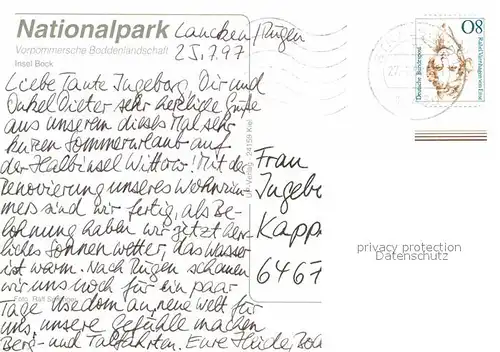 Nationalpark
Vorpommersche Boddenlandschaft
Insel Bock
Lancken/Rügen
25.7.97
Liebe Tante Ingeborg, Dir und
Onkel Dieter sehr herzliche Grüße
aus unserem dieses Mal sehr
kurzen Sommerurlaub auf
der Halbinsel Wittow! Mit der
Renovierung unseres Wohnzim-
mers sind wir fertig, als Be-
lohnung haben wir jetzt herr-
liches Sonnenwetter, das Wasser
ist warm. Nach Rügen schauen
wir uns noch für ein paar
Tage Usedom an, neue Welt für
uns, unsere Gefühle machen
Berg- und Talfahrten. Eure Heide,
Foto: Ralf
Verlag · 24159 Kiel
Frau
Ingebo
Kapp
6467
80
Deutsche Bundespost
Rahel Varnhagen von Ense
privacy protection
Datenschutz